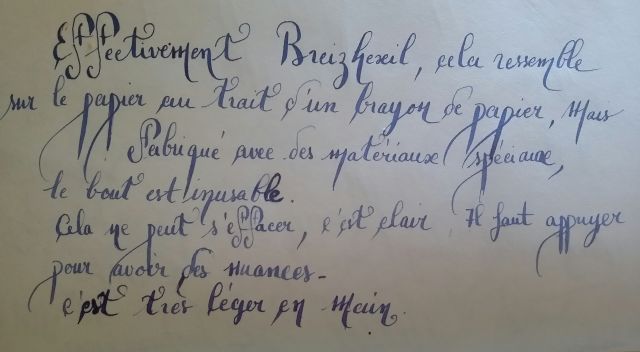 Effectivement Breizhexil, cela ressemble
sur le papier au trait d'un crayon de papier, Mais
Fabriqué avec des matériaux spéciaux,
le bout est inusable.
Cela ne peut s'effacer, c'est clair. Il faut appuyer
pour avoir des nuances.
c'est très léger en main.